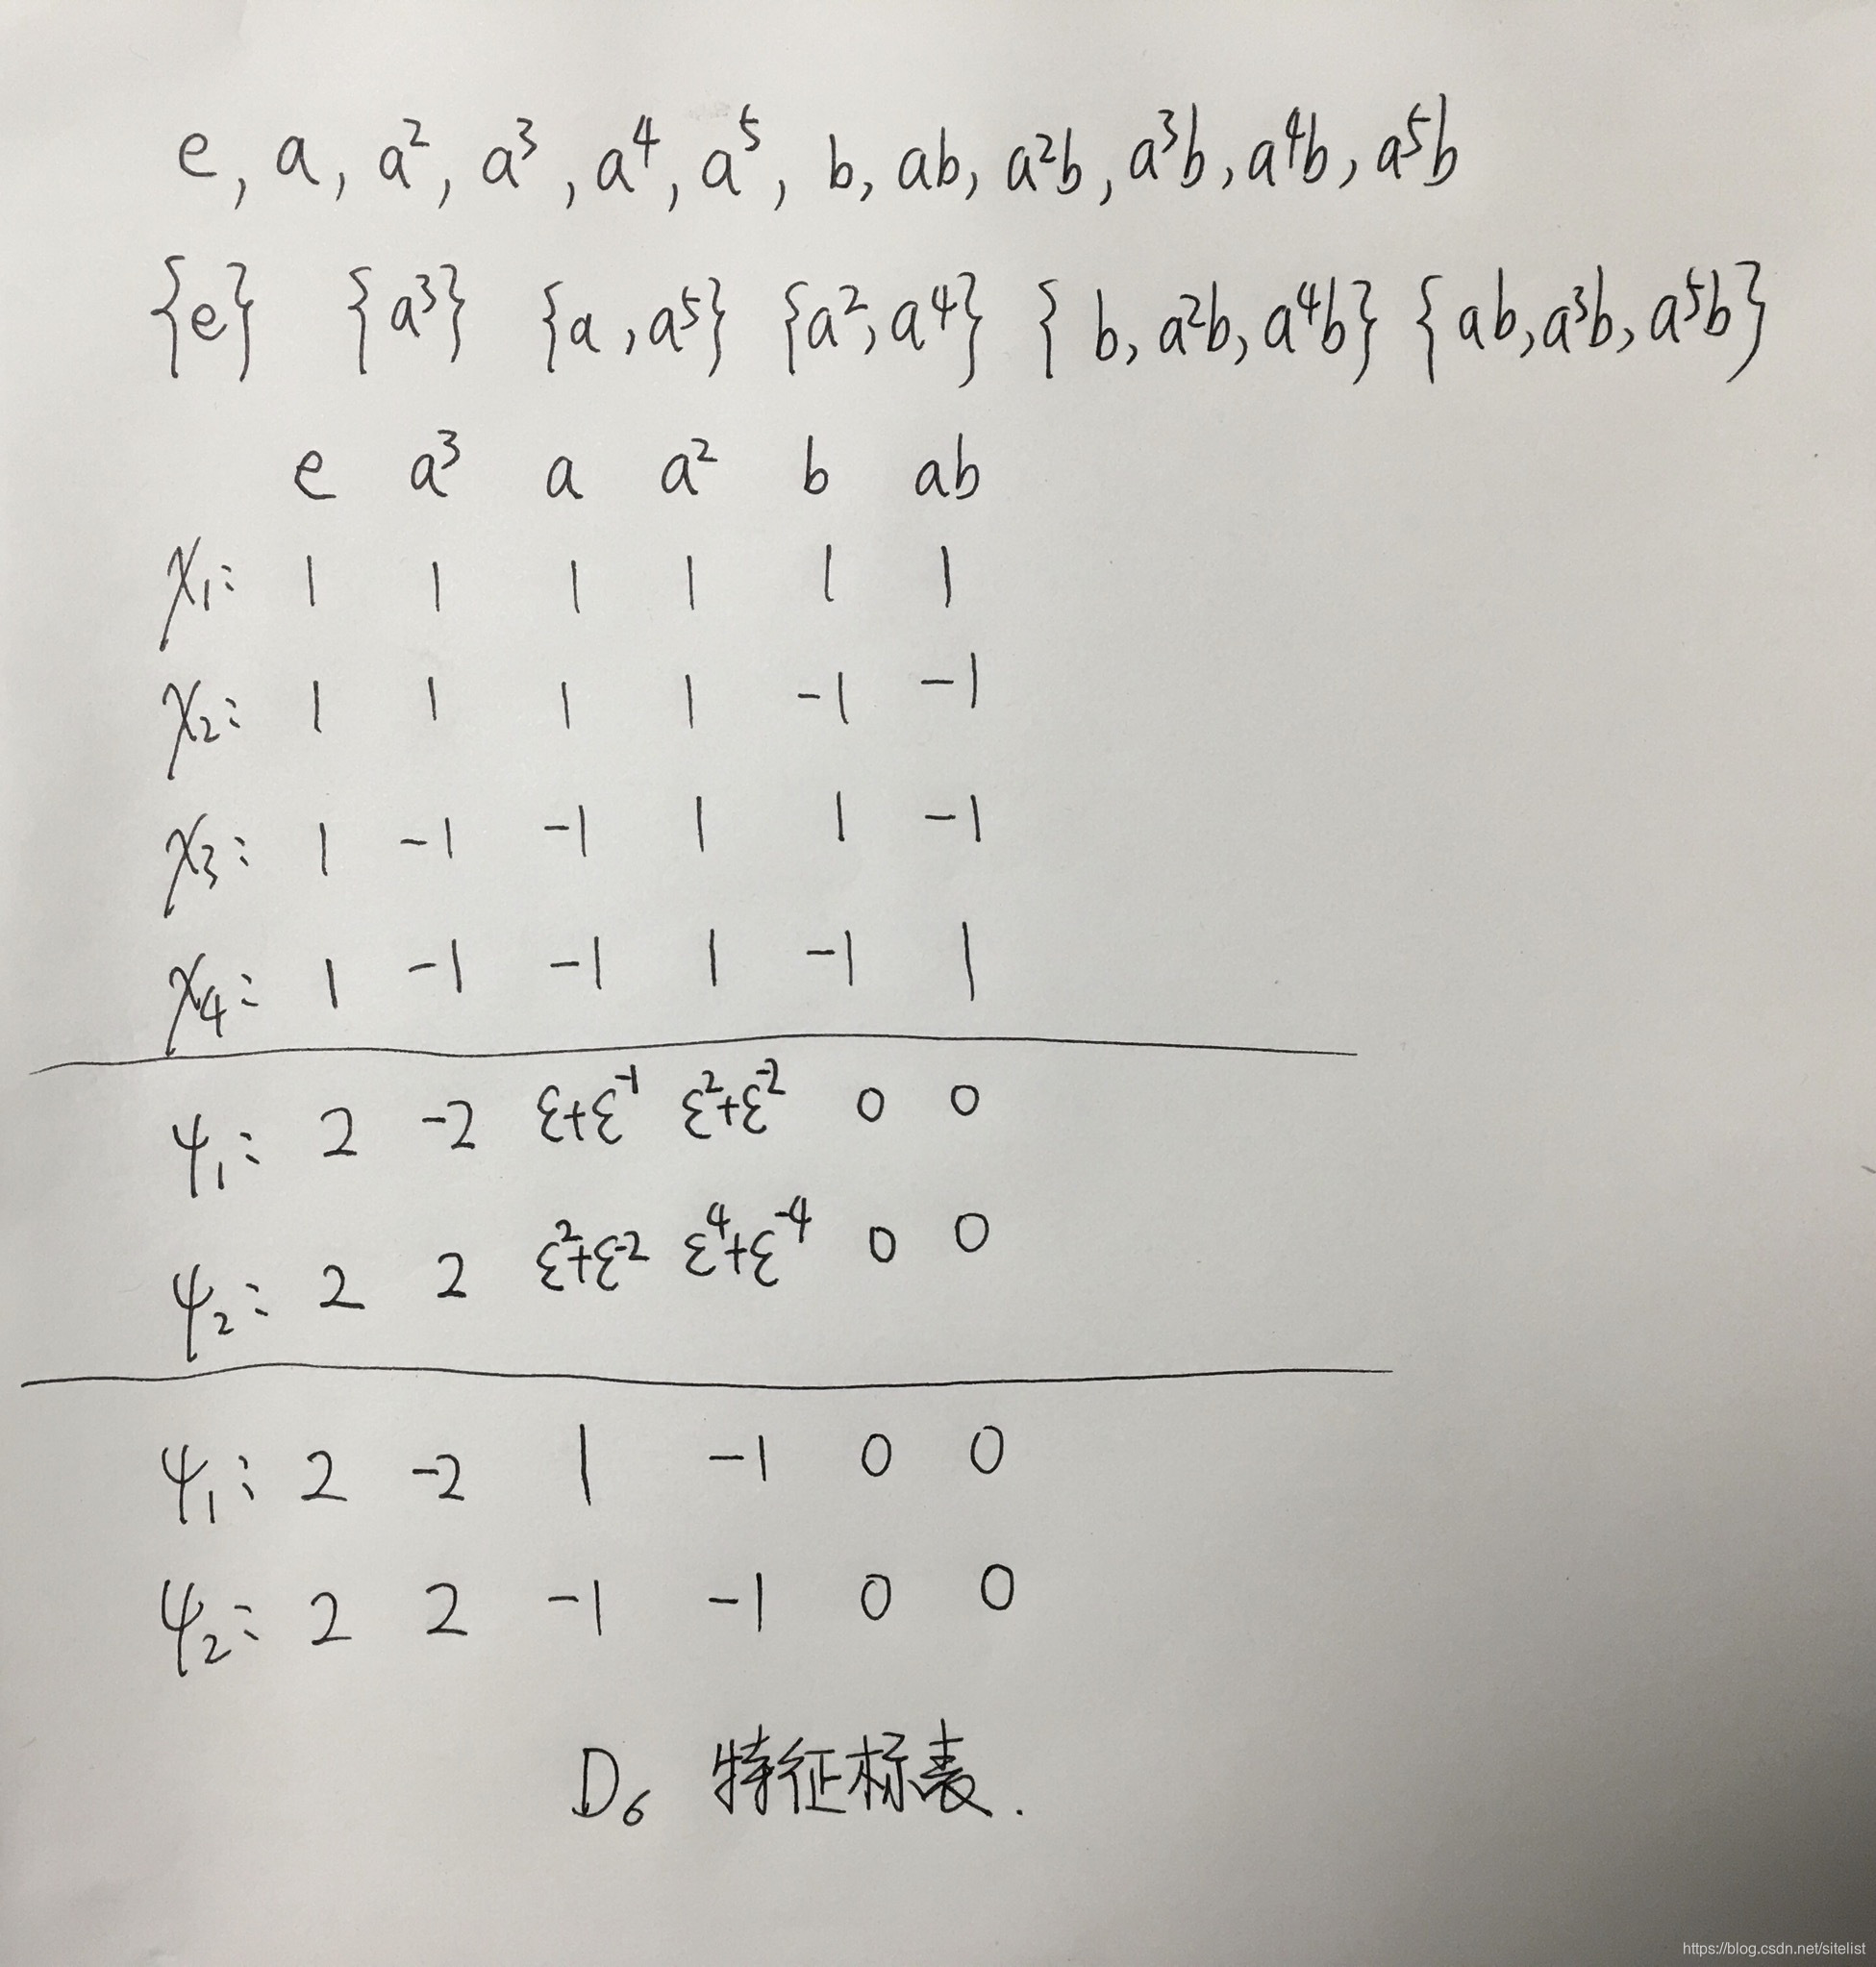 e, a, a², a³, a⁴, a⁵, b, ab, a²b, a³b, a⁴b, a⁵b
{e} {a³} {a, a⁵} {a², a⁴} {b, a²b, a⁴b} {ab, a³b, a⁵b}
e a³ a a² b ab
χ₁: 1 1 1 1 1 1
χ₂: 1 1 1 1 -1 -1
χ₃: 1 -1 -1 1 1 -1
χ₄: 1 -1 -1 1 -1 1
ψ₁: 2 -2 ε+ε⁻¹ ε²+ε⁻² 0 0
ψ₂: 2 2 ε²+ε⁻² ε⁴+ε⁻⁴ 0 0
ψ₁: 2 -2 1 -1 0 0
ψ₂: 2 2 -1 -1 0 0
D₆ 特征标表.
https://blog.csdn.net/sitelist